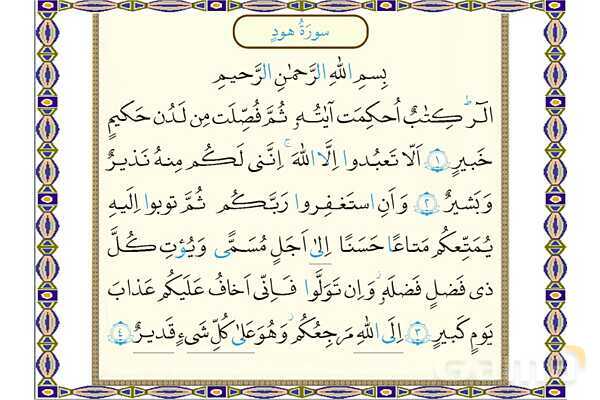 سورَةُ هودٍ
بِسمِ اللهِ الرَّحمٰنِ الرَّحيمِ
الٓر ۚ كِتٰبٌ اُحكِمَت آيٰتُهُ ثُمَّ فُصِّلَت مِن لَدُن حَكيمٍ
خَبيرٍ ﴿١﴾ اَلّا تَعبُدوا اِلَّا اللهَ ۚ اِنَّنى لَكُم مِنهُ نَذيرٌ
وَ بَشيرٌ ﴿٢﴾ وَ اَنِ استَغفِروا رَبَّكُم ثُمَّ توبوا اِلَيهِ
يُمَتِّعكُم مَتاعًا حَسَنًا اِلىٰ اَجَلٍ مُسَمًّى وَ يُؤتِ كُلَّ
ذى فَضلٍ فَضلَهُ ۖ وَ اِن تَوَلَّوا فَاِنّى اَخافُ عَلَيكُم عَذابَ
يَومٍ كَبيرٍ ﴿٣﴾ اِلَى اللهِ مَرجِعُكُم ۖ وَ هُوَ عَلىٰ كُلِّ شَىءٍ قَديرٌ ﴿٤﴾